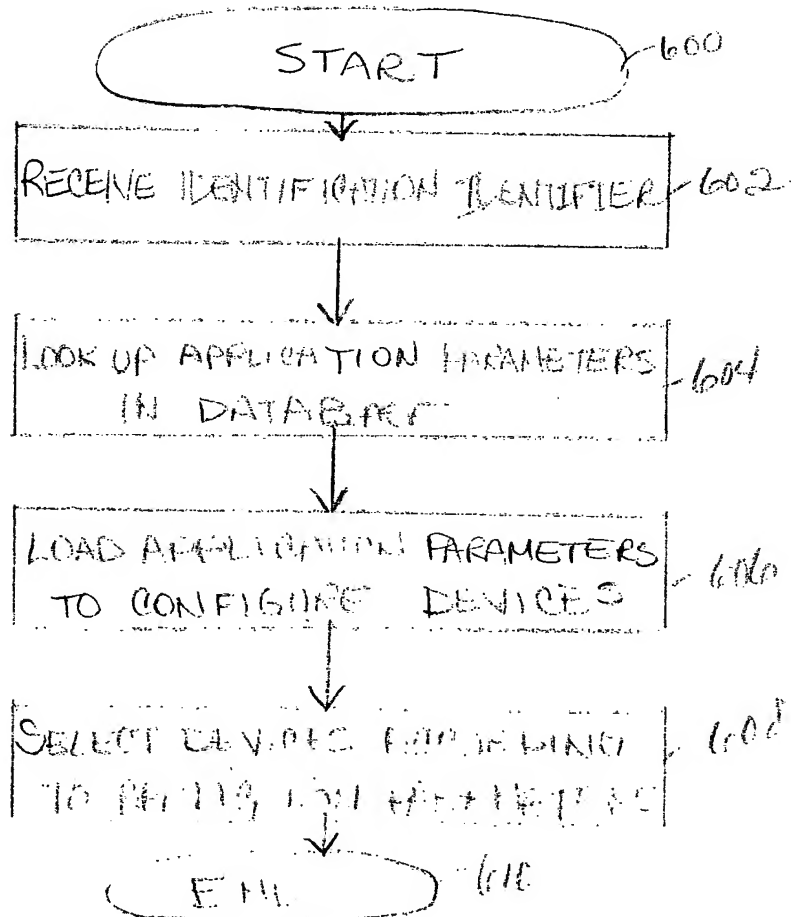 START 600
RECEIVE IDENTIFICATION IDENTIFIER 602
LOOK UP APPLICATION PARAMETERS 604
IN DATABASE
LOAD APPLICATION PARAMETERS 606
TO CONFIGURE DEVICES
SELECT DEVICES 608
TO PARAMETERS
END 610